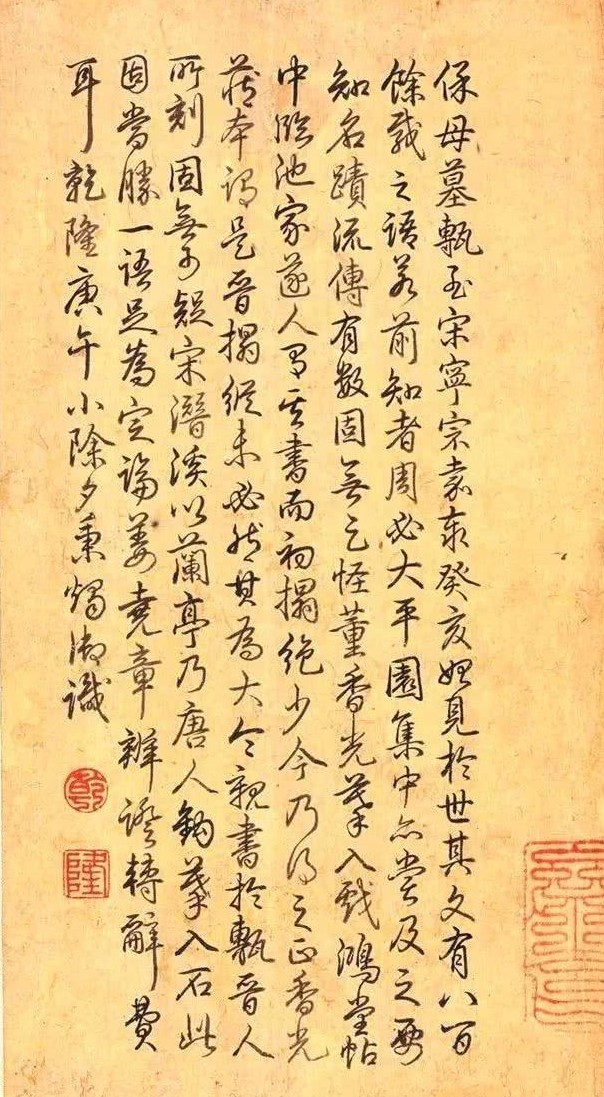 保母墓甎至宋寧宗嘉泰癸亥始見於世其文有八百
餘載之語若前知者周必大平園集中亦嘗及之要
知名蹟流傳有數固無足怪董香光摹入戲鴻堂帖
中臨池家遂人習其書而初搨絶少今乃得之正香光
藏本謂是晉搨縱未必然其為大令親書於甎晉人
所刻固無可疑宋潛溪以蘭亭乃唐人鉤摹入石此
固當勝一語足為定論姜堯章辨證轉辭費
耳乾隆庚午小除夕秉燭御識
乾
隆